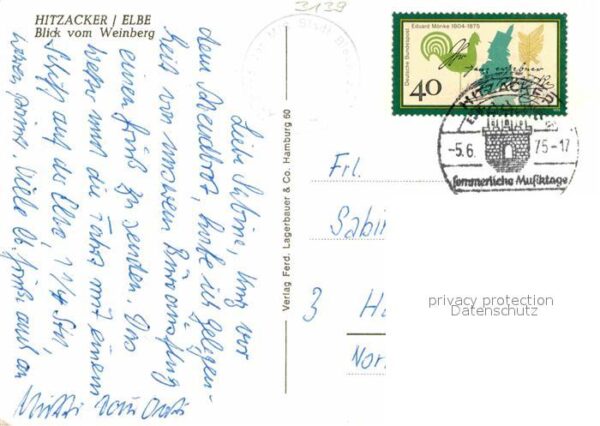 3139
HITZACKER / ELBE
Blick vom Weinberg
Deutsche Bundespost
Eduard Mörike 1804-1875
40
HITZACKER
-5.6. 75-17
Sommerliche Musiktage
Liebe Sabine, kurz vor
dem Abendbrot, habe ich Gelegen-
heit von unserem Büroausflug
einen Gruß zu senden. Das
Wetter und die Fahrt mit einem
Schiff auf der Elbe, 1 1/4 Std,
waren prima. Viele lb. Grüße auch an
Mutti von
Verlag Ferd. Lagerbauer & Co. Hamburg 60
Frl.
Sabin
3 H
Nor
privacy protection
Datenschutz